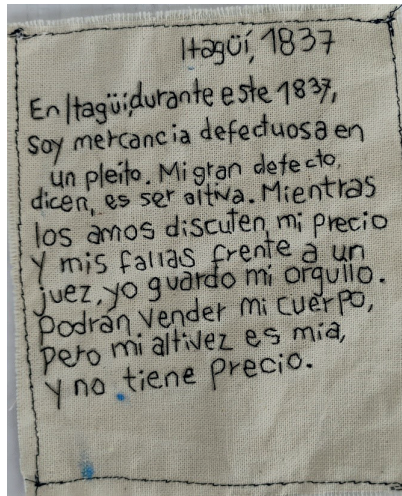 Itagüí, 1837
En Itagüí, durante este 1837,
soy mercancia defectuosa en
un pleito. Mi gran defecto,
dicen, es ser altiva. Mientras
los amos discuten mi precio
y mis fallas frente a un
juez, yo guardo mi orgullo.
Podrán vender mi cuerpo,
pero mi altivez es mía,
y no tiene precio.